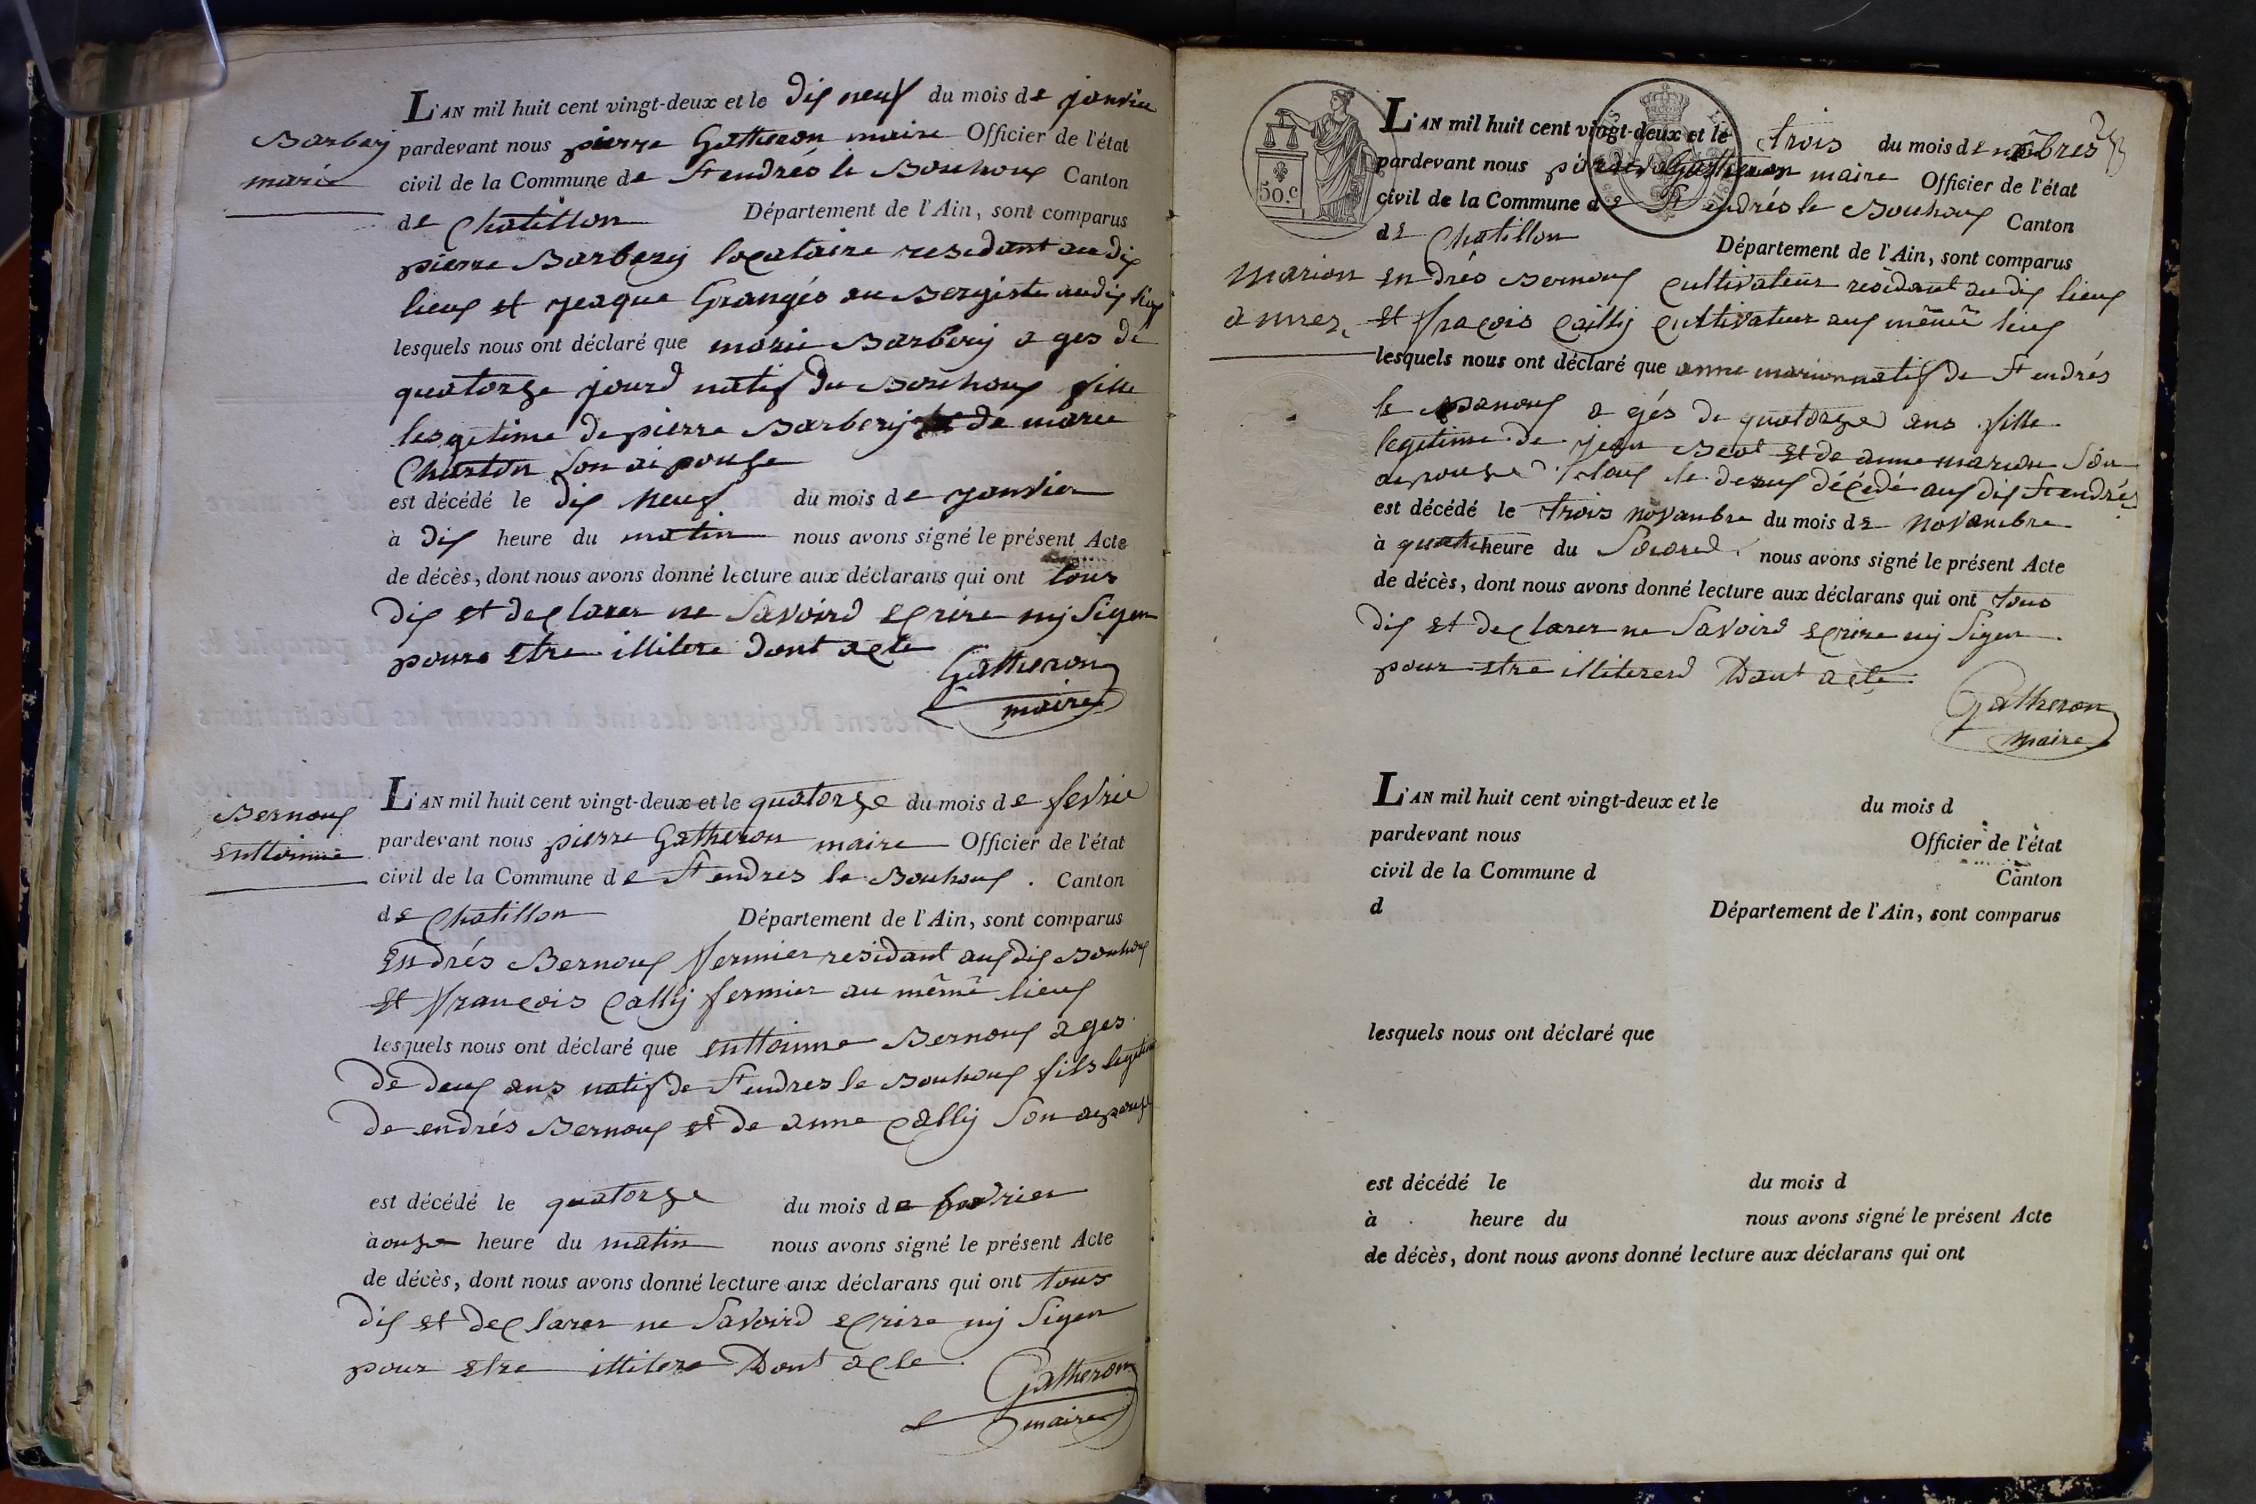 L'AN mil huit cent vingt-deux et le dix neuf du mois de janvier
Barbery
marie
pardevant nous pierre Gatheron maire Officier de l'état
civil de la Commune de St endrés le Bouhoux Canton
de Chatillon Département de l'Ain, sont comparus
pierre Barbery locataire residant au dix
lieux et jeaque Grangés au Bergiste audix lieux
lesquels nous ont déclaré que marie Barbery a ges de
quatorze jourd natif du Bouhoux fille
lesgetime de pierre Barbery et de marie
Charton son ai pouse
est décédé le dix neuf du mois de janvier
à dix heure du matin nous avons signé le présent Acte
de décès, dont nous avons donné lecture aux déclarans qui ont tous
dix et declarer ne savoird ecrire ny signer
pour etre illitere dont acte
Gatheron
maire
L'AN mil huit cent vingt-deux et le quatorze du mois de fevrie
Bernoux
enttoinne
pardevant nous pierre Gatheron maire Officier de l'état
civil de la Commune de St endres le Bouhoux . Canton
de Chatillon Département de l'Ain, sont comparus
endrés Bernoux fermier residant aux dix Bouhoux
et francois Cally fermier au même lieux
lesquels nous ont déclaré que enttoinne Bernoux ages
de deux ans natif de St endres le Bouhoux fils legitime
de endrés Bernoux et de anne Cally son aepouse
est décédé le quatorze du mois de fevrier
à onze heure du matin nous avons signé le présent Acte
de décès, dont nous avons donné lecture aux déclarans qui ont tous
dix et declarer ne savoird ecrire ny signer
pour etre illitere Dont acte
Gatheron
maire
50 c
L'AN mil huit cent vingt-deux et le trois du mois de
pardevant nous pierre Gatheron maire Officier de l'état
civil de la Commune de St endrés le Bouhoux Canton
de Chatillon Département de l'Ain, sont comparus
marion
annez
endrés Bernoux cultivateur residant au dix lieux
et fracois Cailly cultivateur aux même lieux
lesquels nous ont déclaré que anne marion natif de St endrés
le a gés de quatorze ans fille
legetime de jean et de anne marion son
aepouse le decedé aux dix St endrés
est décédé le trois novanbre du mois de novanbre
à quatre heure du nous avons signé le présent Acte
de décès, dont nous avons donné lecture aux déclarans qui ont tous
dix et declarer ne savoird ecrire ny signer
pour etre illitererd Dont acte
Gatheron
maire
L'AN mil huit cent vingt-deux et le du mois d
pardevant nous Officier de l'état
civil de la Commune d Canton
d Département de l'Ain, sont comparus
lesquels nous ont déclaré que
est décédé le du mois d
à heure du nous avons signé le présent Acte
de décès, dont nous avons donné lecture aux déclarans qui ont